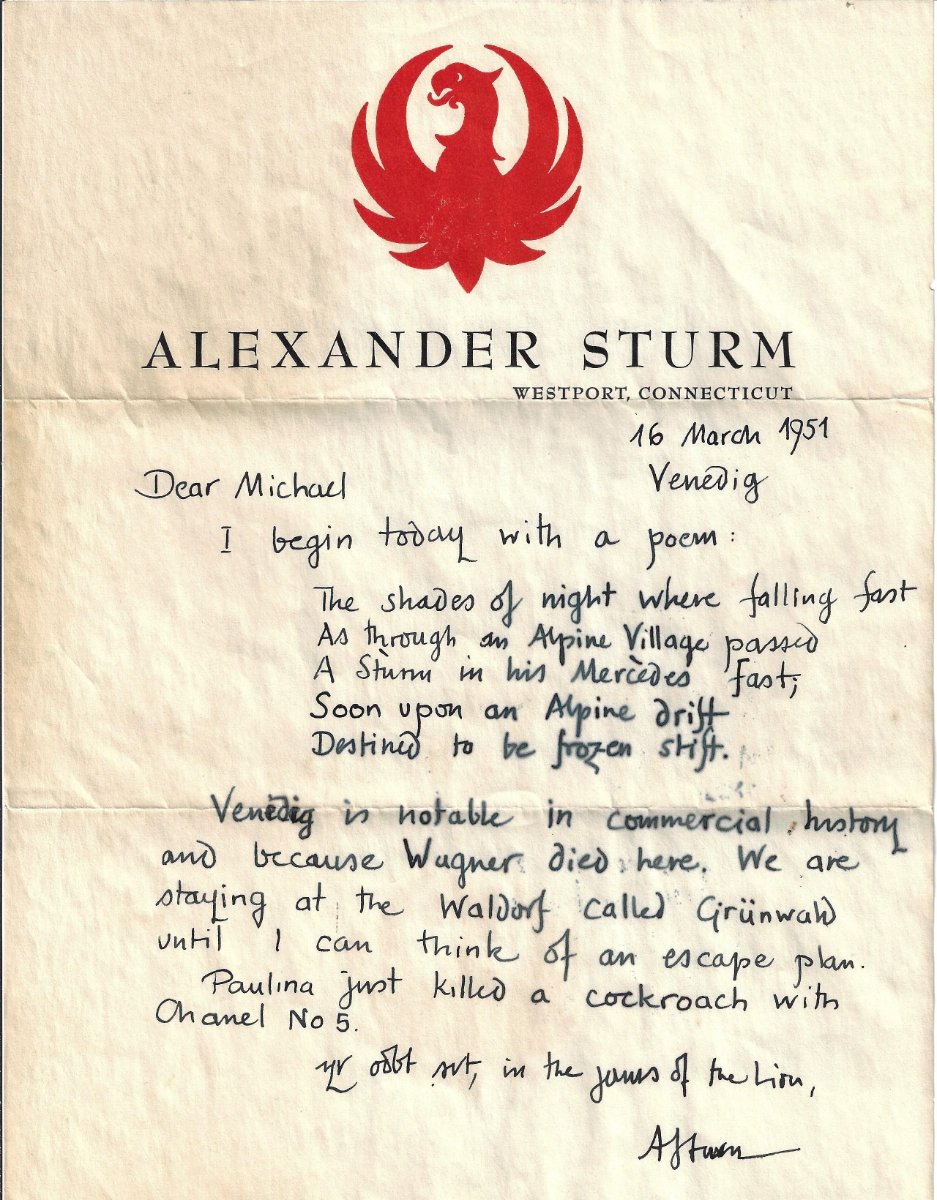 ALEXANDER STURM
WESTPORT, CONNECTICUT
16 March 1951
Venedig
Dear Michael
I begin today with a poem:
The shades of night where falling fast
As through an Alpine Village passed
A Sturm in his Mercèdes fast;
Soon upon an Alpine drift
Destined to be frozen stift.
Venedig is notable in commercial history
and because Wagner died here. We are
staying at the Waldorf called Grünwald
until I can think of an escape plan.
Paulina just killed a cockroach with
Chanel No 5.
yr obbt svt, in the jaws of the Lion,
ASturm